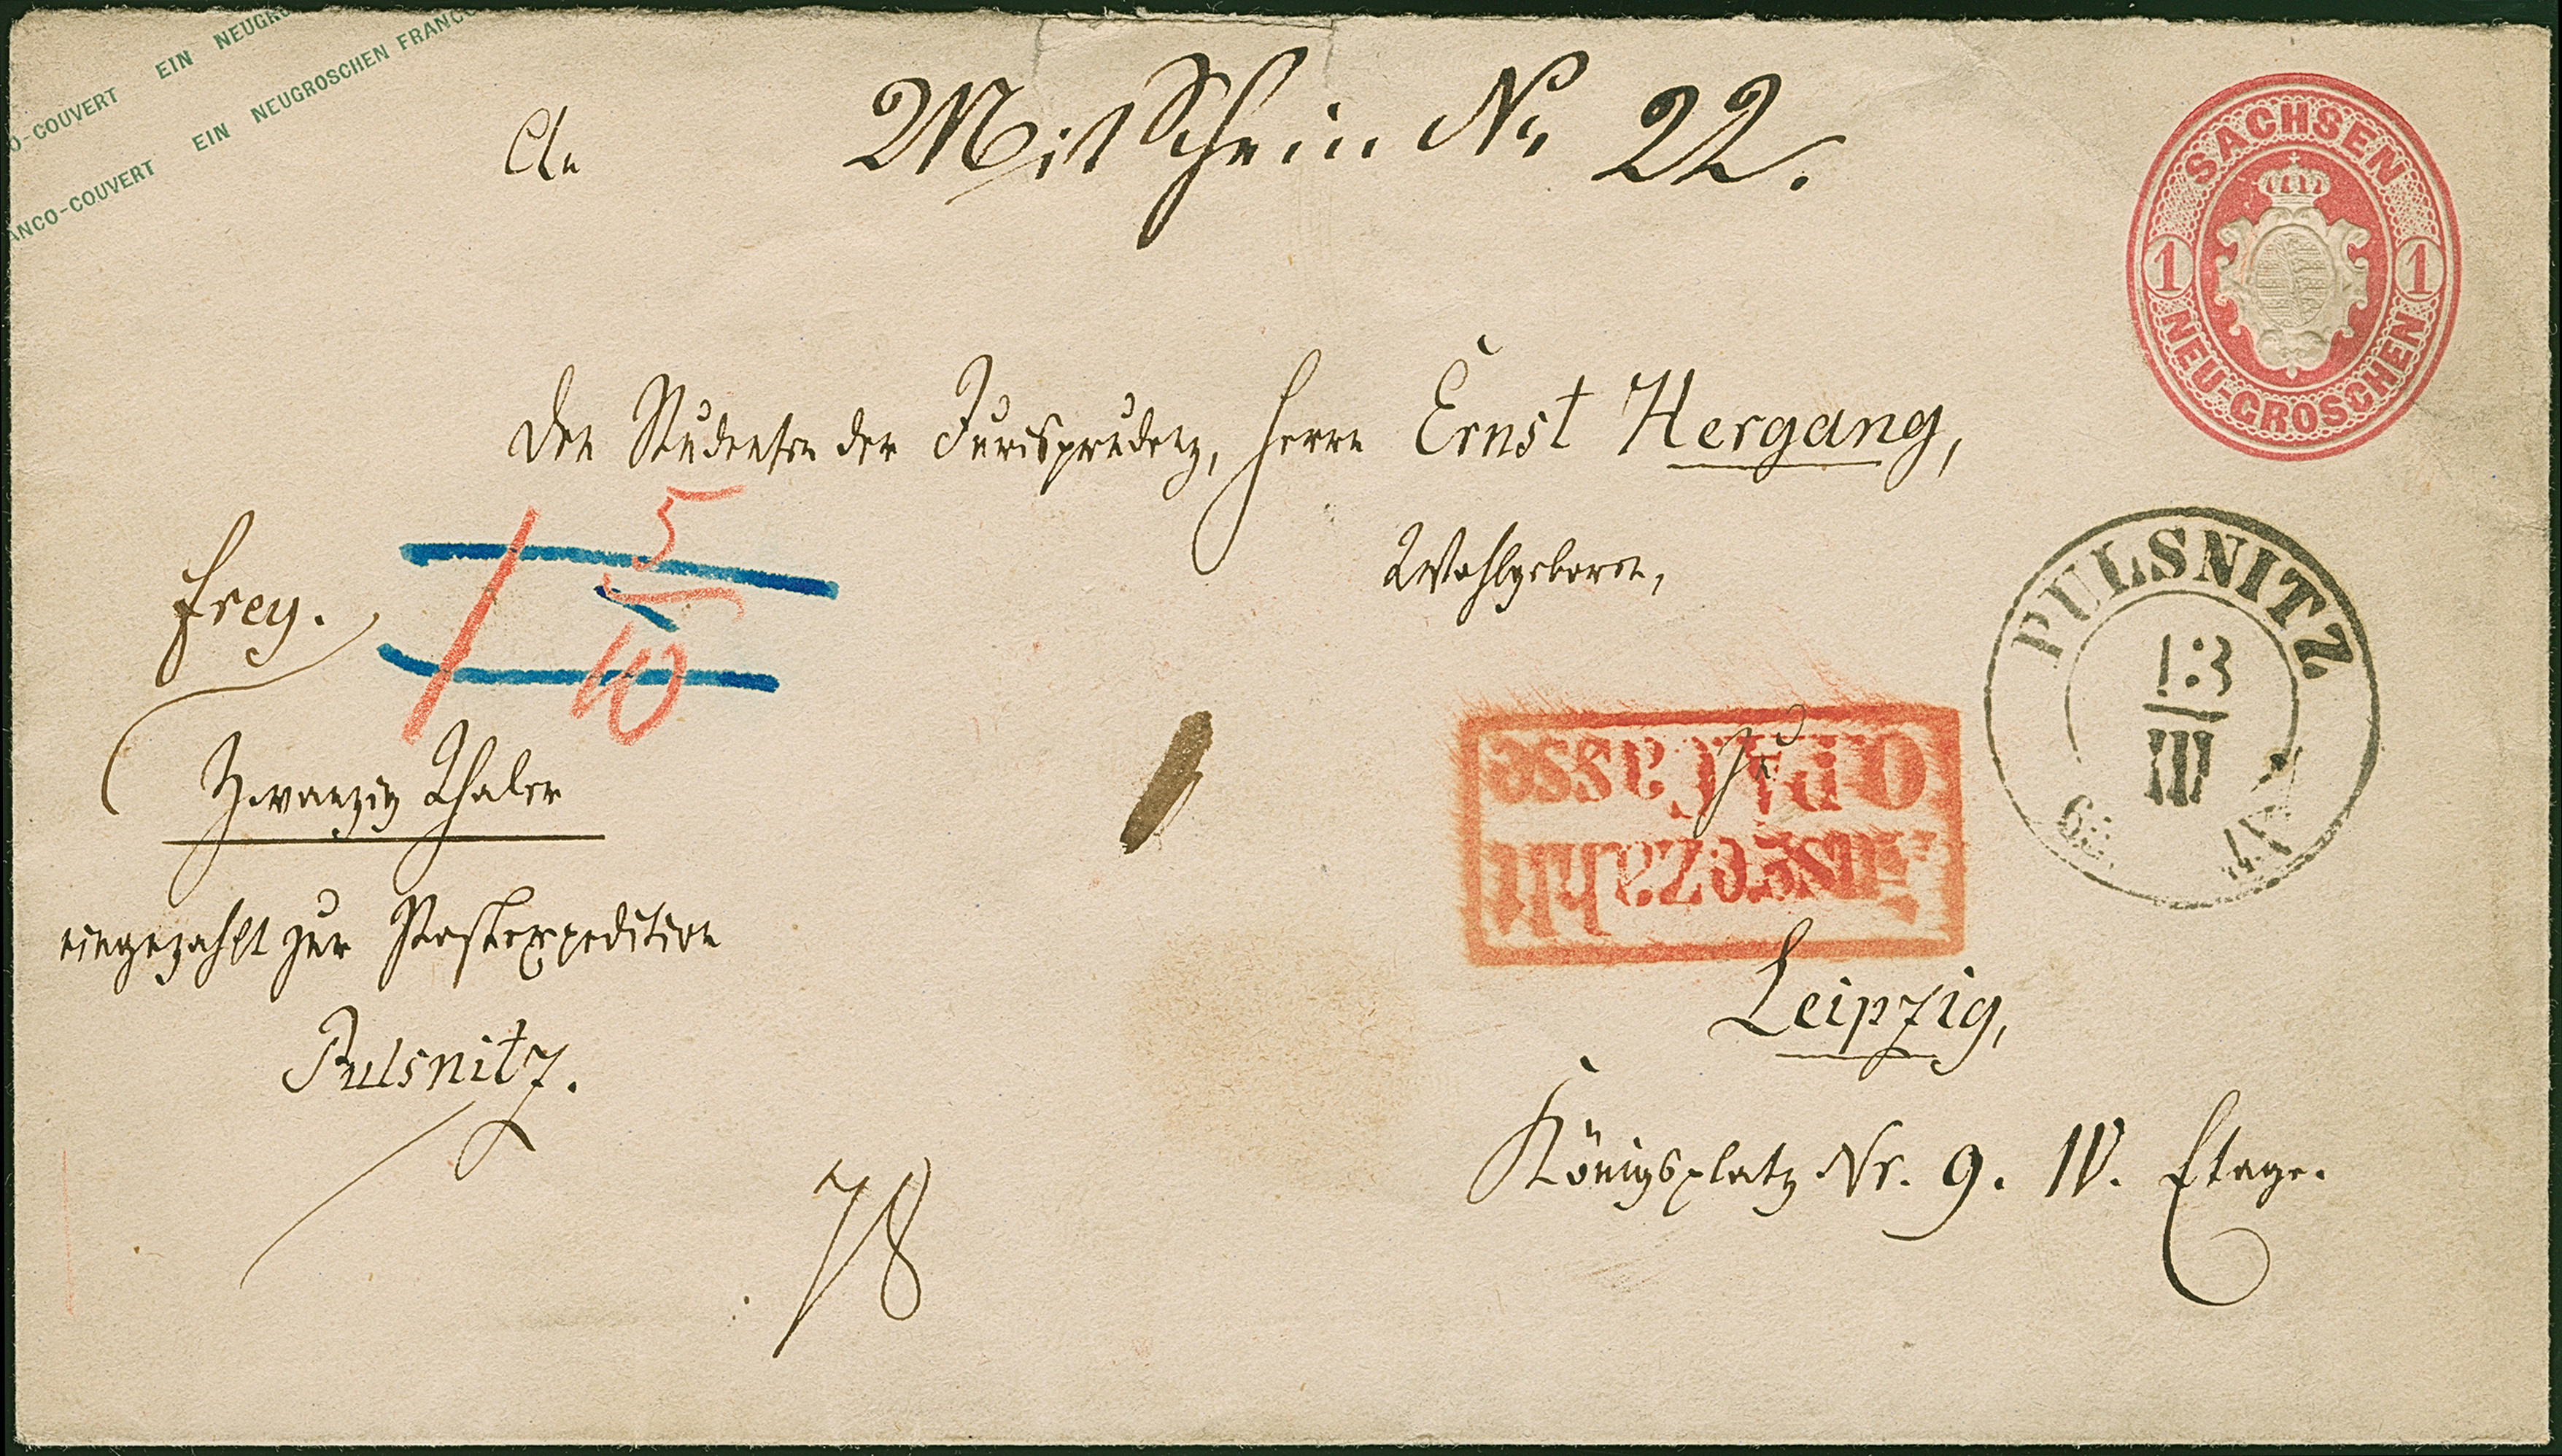 O-COUVERT EIN NEUGRO
ANCO-COUVERT EIN NEUGROSCHEN FRANCO
An
Mit Schein No 22.
SACHSEN
1 1
NEU-GROSCHEN
Den Studenten der Jurisprudenz, Herrn Ernst Hergang,
Wohlgeboren,
frey.
5
10
PULSNITZ
13
III
63
Zwanzig Thaler
eingezahlt zur Postexpedition
Pulsnitz.
zu
O.P.A. Casse
Ausgezahlt
Leipzig,
Königsplatz Nr. 9. IV. Etage.
78